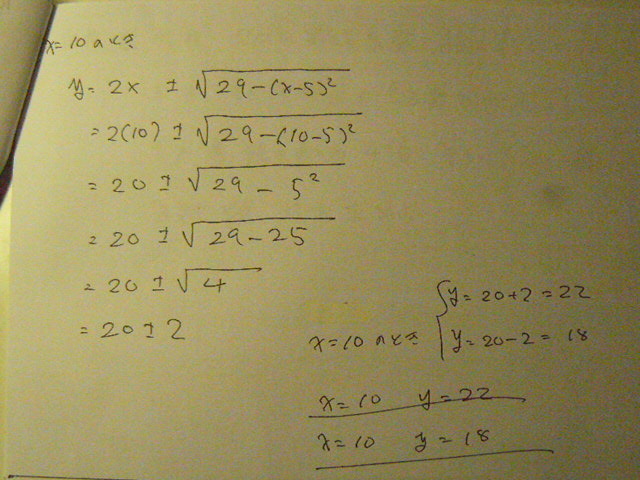 x=10のとき
y=2x ± √29-(x-5)²
=2(10) ± √29-(10-5)²
=20 ± √29-5²
=20 ± √29-25
=20 ± √4
=20 ± 2
x=10のとき { y=20+2=22
y=20-2=18
x=10 y=22
x=10 y=18